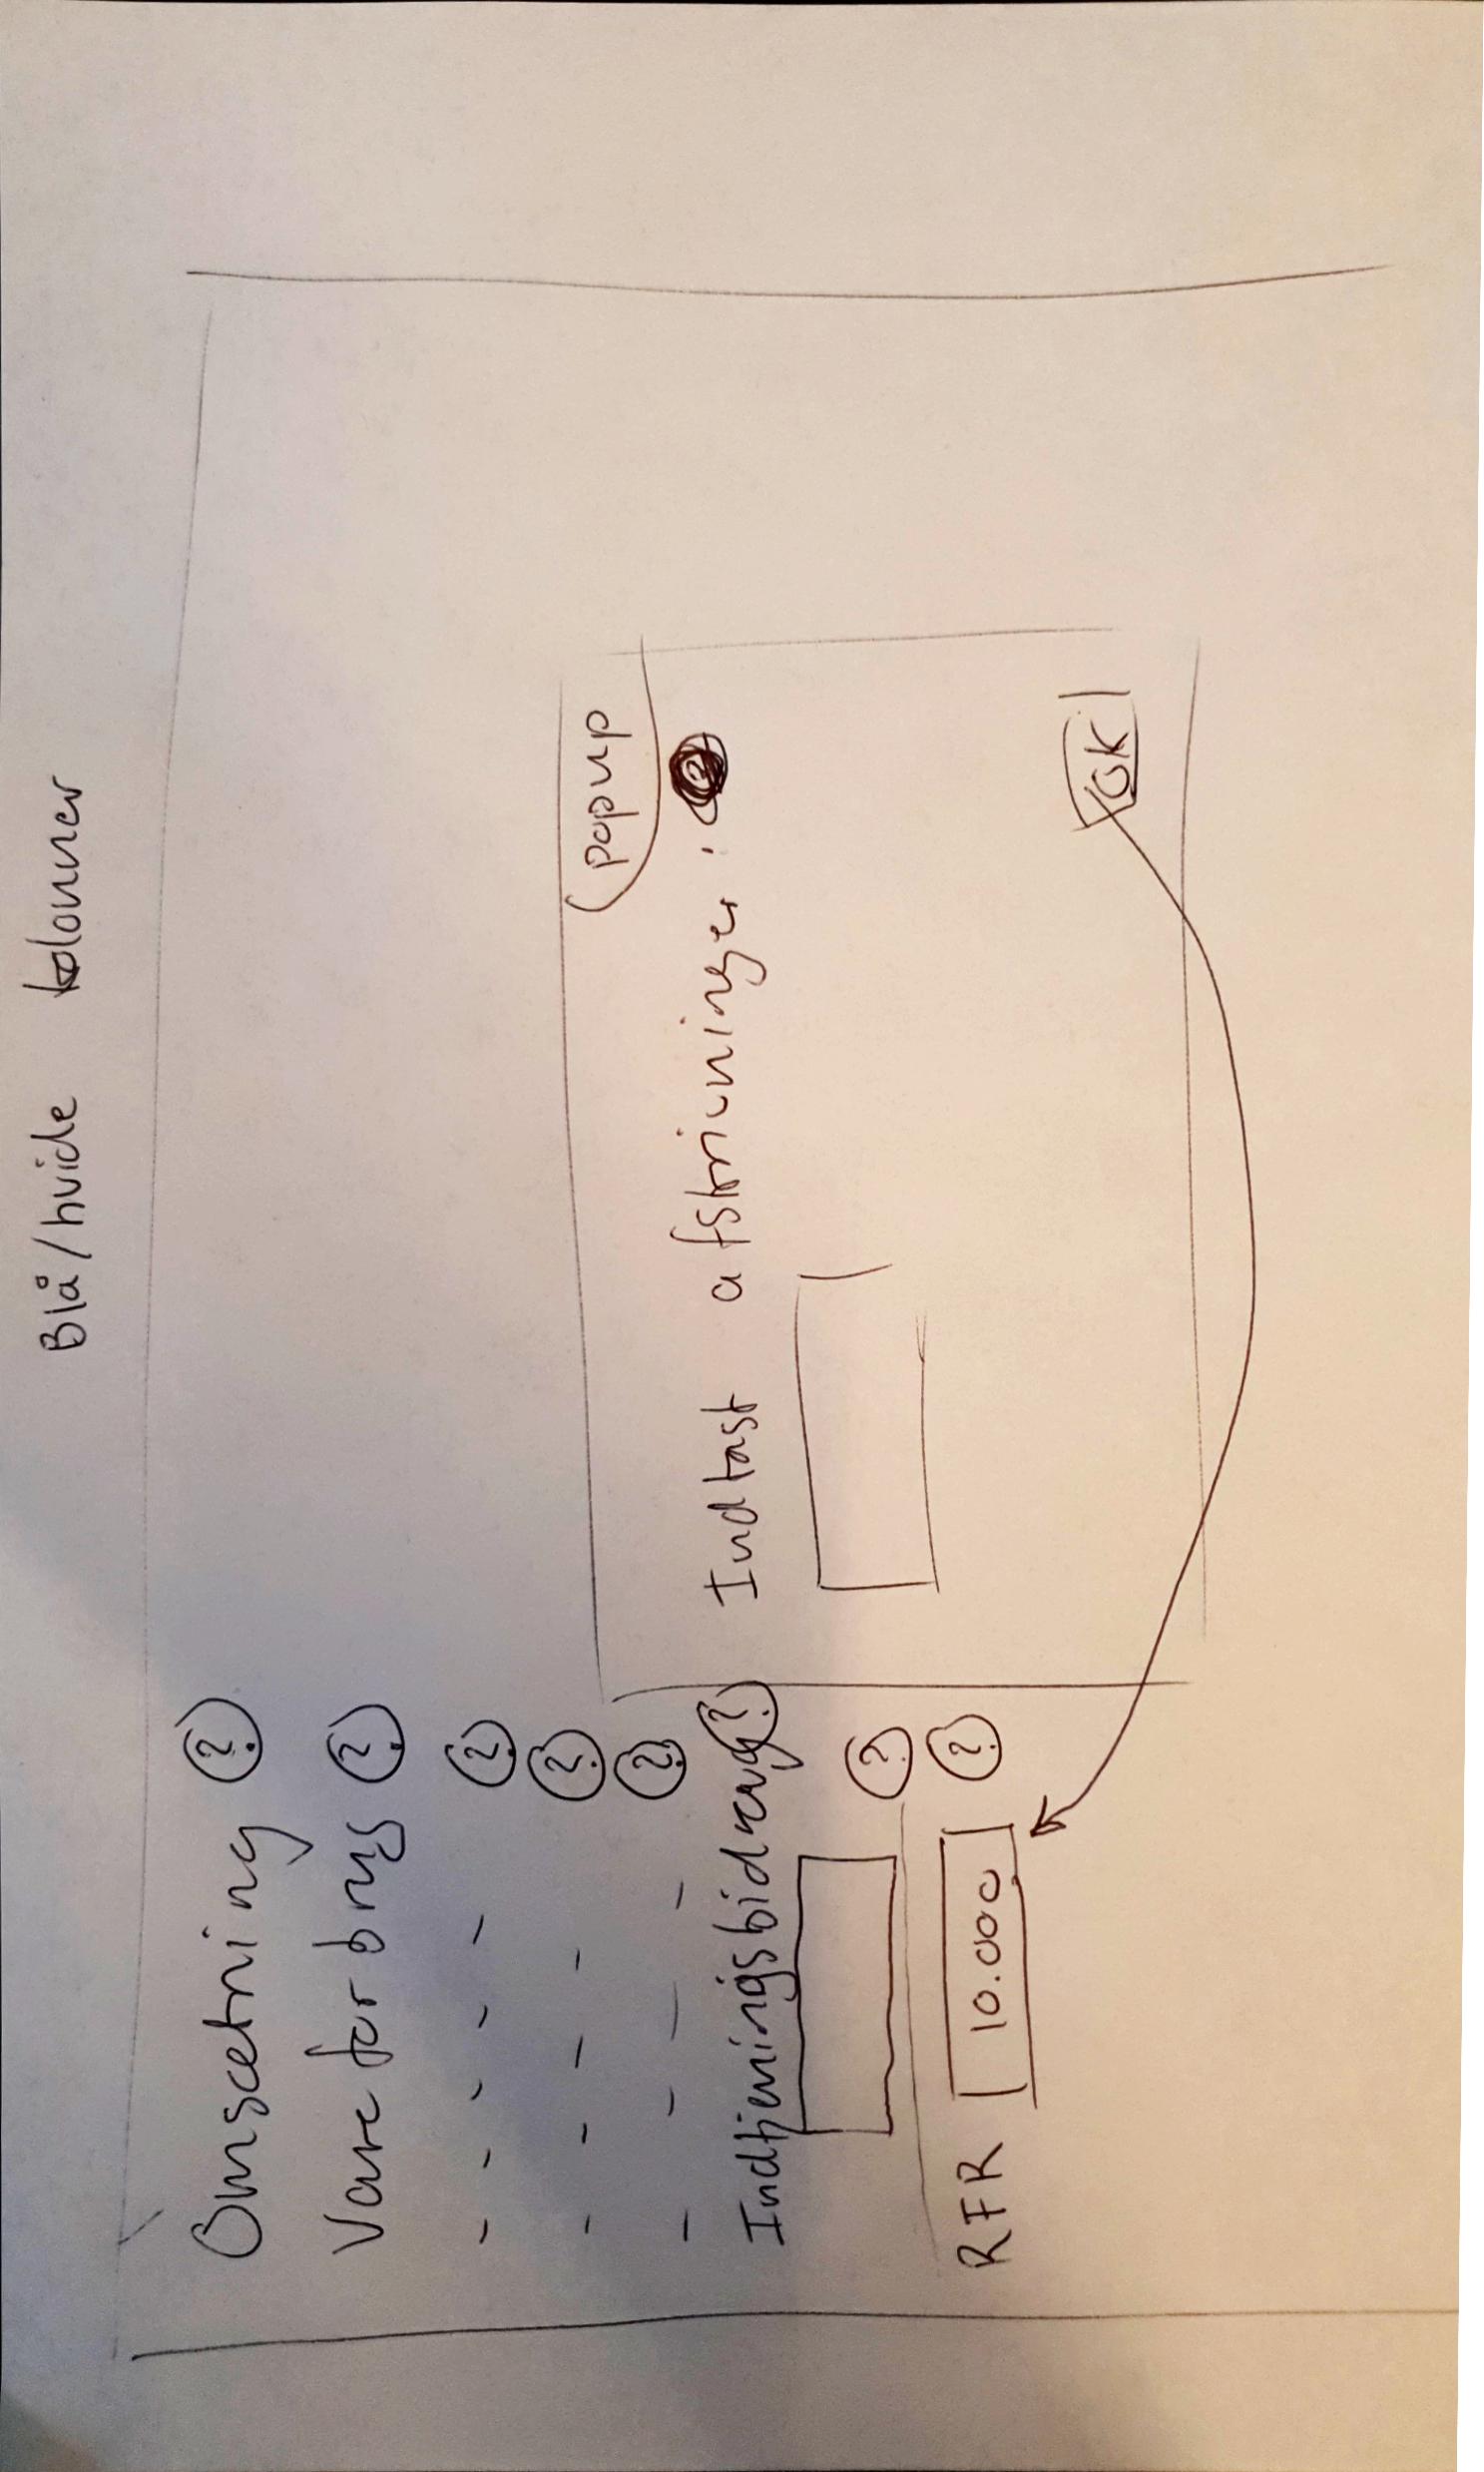 Blå/hvide kolonner
Omsætning ?
Vareforbrug ?
- - - - ?
- - - - ?
- - - - ?
Indtjeningsbidrag ?
?
RFR 10.000 ?
popup
Indtast afskrivninger.
OK